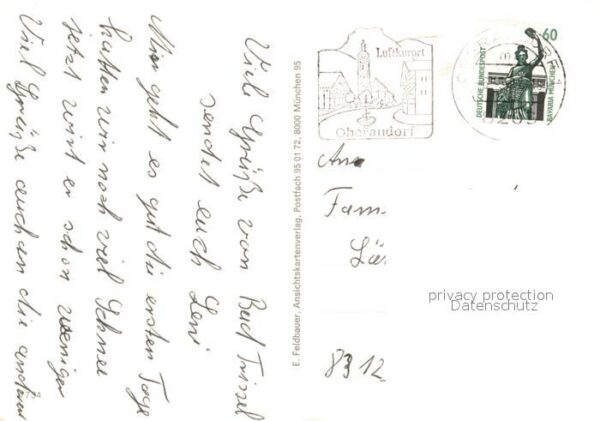 Viele Grüße von Bad Trissel
sendet euch
Leni
Mir geht es gut die ersten Tage
hatten wir noch viel Schnee
jetzt wird er schon weniger
Viel Grüße auch an die anderen
E. Feldbauer, Ansichtskartenverlag, Postfach 95 01 72, 8000 München 95
Luftkurort
Oberaudorf
60
DEUTSCHE BUNDESPOST
BAVARIA MÜNCHEN
8203
An
Fam.
8312
privacy protection
Datenschutz